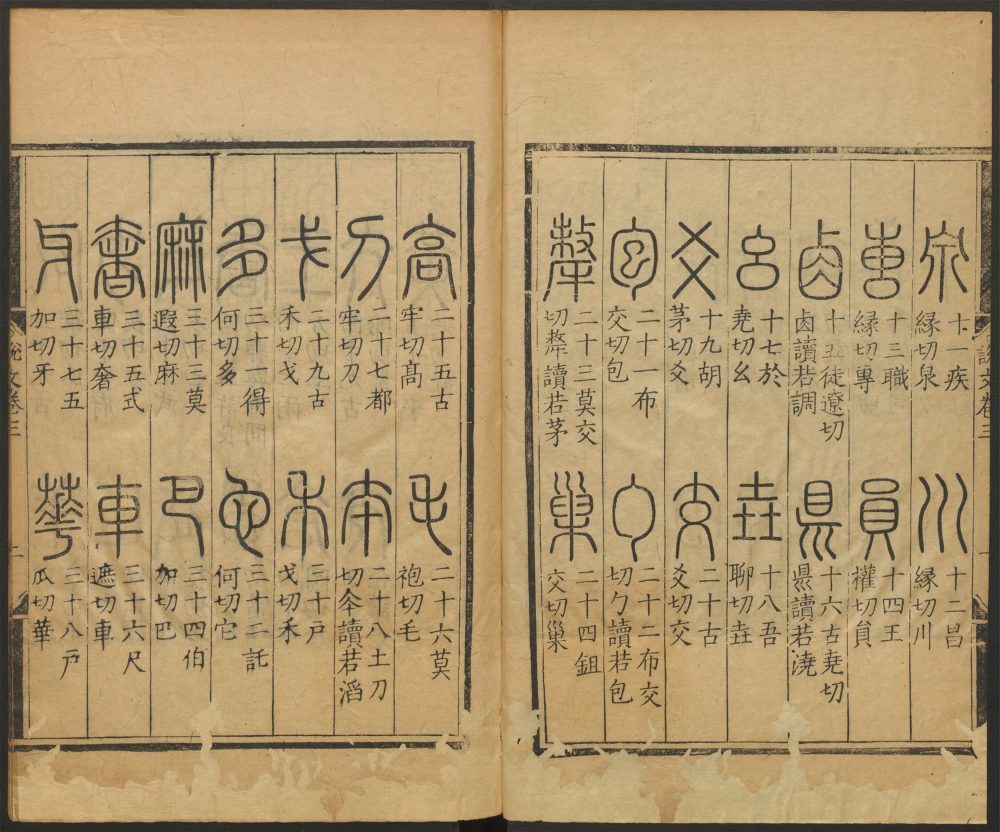 說文卷三
泉 十一疾
緣切泉
川 十二昌
緣切川
叀 十三職
緣切專
員 十四王
權切貟
卥 十五徒遼切
卤讀若調
県 十六古堯切
県讀若澆
幺 十七於
堯切幺
垚 十八吾
聊切垚
爻 十九胡
茅切爻
交 二十古
爻切交
包 二十一布
交切包
勹 二十二布交
切勹讀若包
犛 二十三莫交
切犛讀若茅
巢 二十四鉏
交切巢
高 二十五古
牢切髙
毛 二十六莫
袍切毛
刀 二十七都
牢切刀
夲 二十八土刀
切夲讀若滔
戈 二十九古
禾切戈
禾 三十戸
戈切禾
多 三十一得
何切多
它 三十二託
何切它
麻 三十三莫
遐切麻
巴 三十四伯
加切巴
奢 三十五式
車切奢
車 三十六尺
遮切車
牙 三十七五
加切牙
華 三十八戸
瓜切華
說文卷三
二